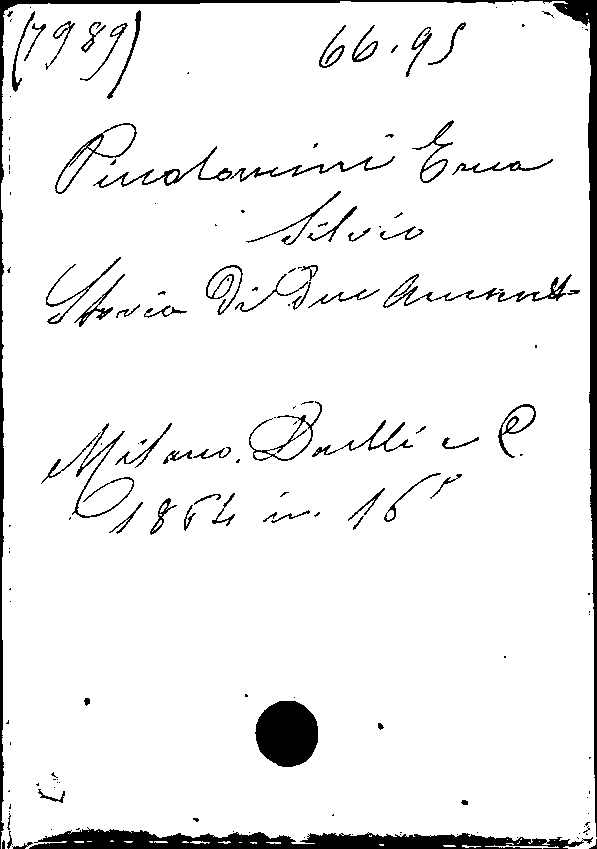 (7989) 66.95
Piccolomini Enea
Silvio
Storia di due Amanti
Milano. Daelli e C.
1864 in 16°